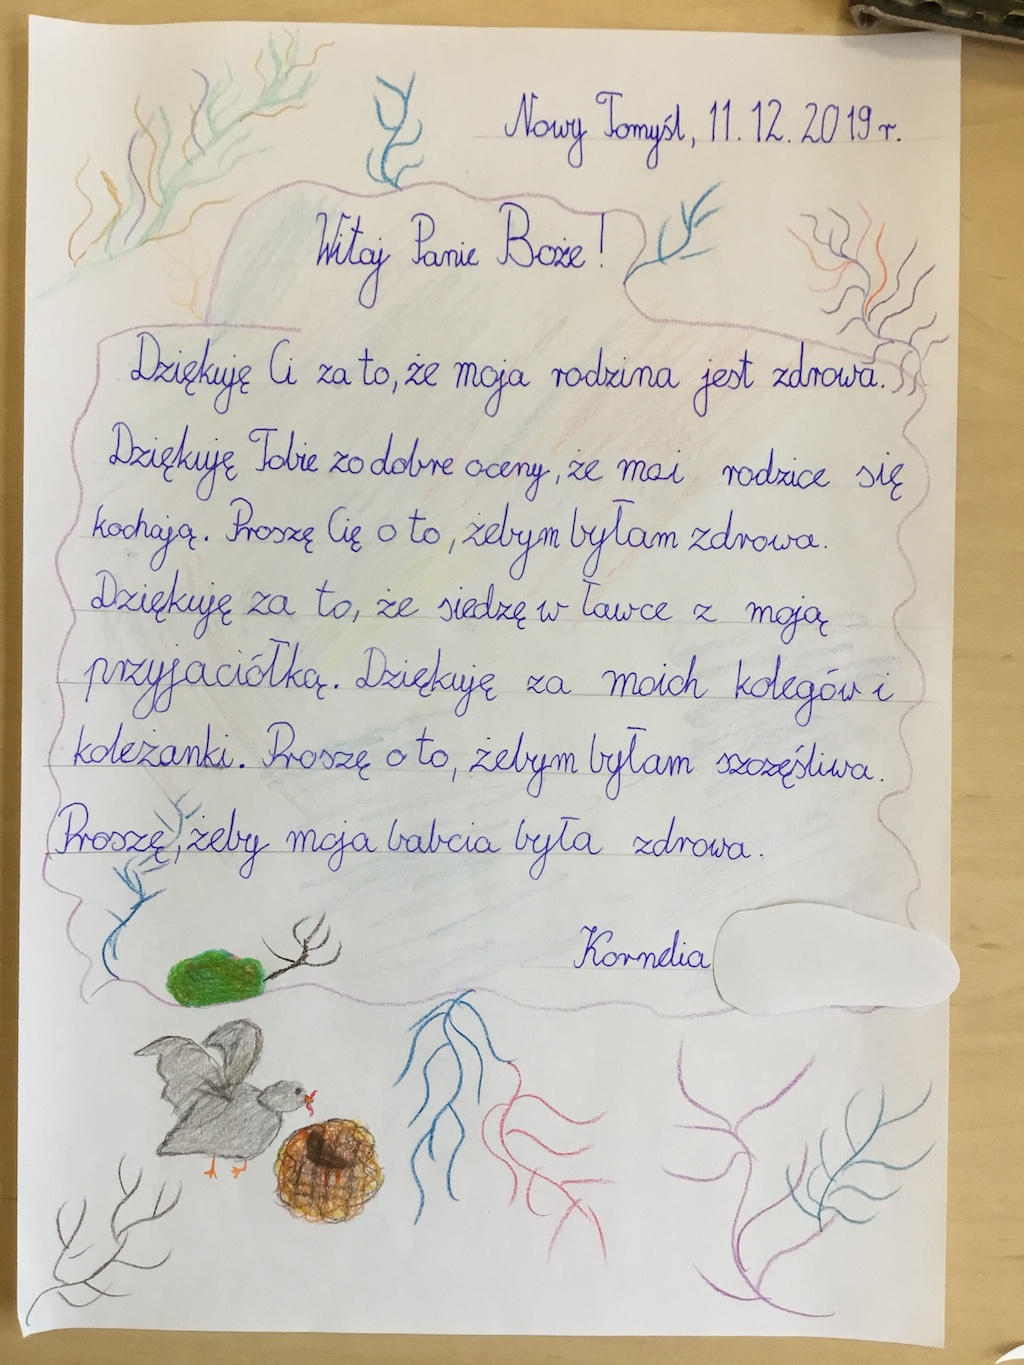 Nowy Tomyśl, 11.12.2019 r.
Witaj Panie Boże!
Dziękuję Ci za to, że moja rodzina jest zdrowa.
Dziękuję Tobie za dobre oceny, że moi rodzice się
kochają. Proszę Cię o to, żebym byłam zdrowa.
Dziękuję za to, że siedzę w ławce z moją
przyjaciółką. Dziękuję za moich kolegów i
koleżanki. Proszę o to, żebym byłam szczęśliwa.
Proszę, żeby moja babcia była zdrowa.
Kornelia